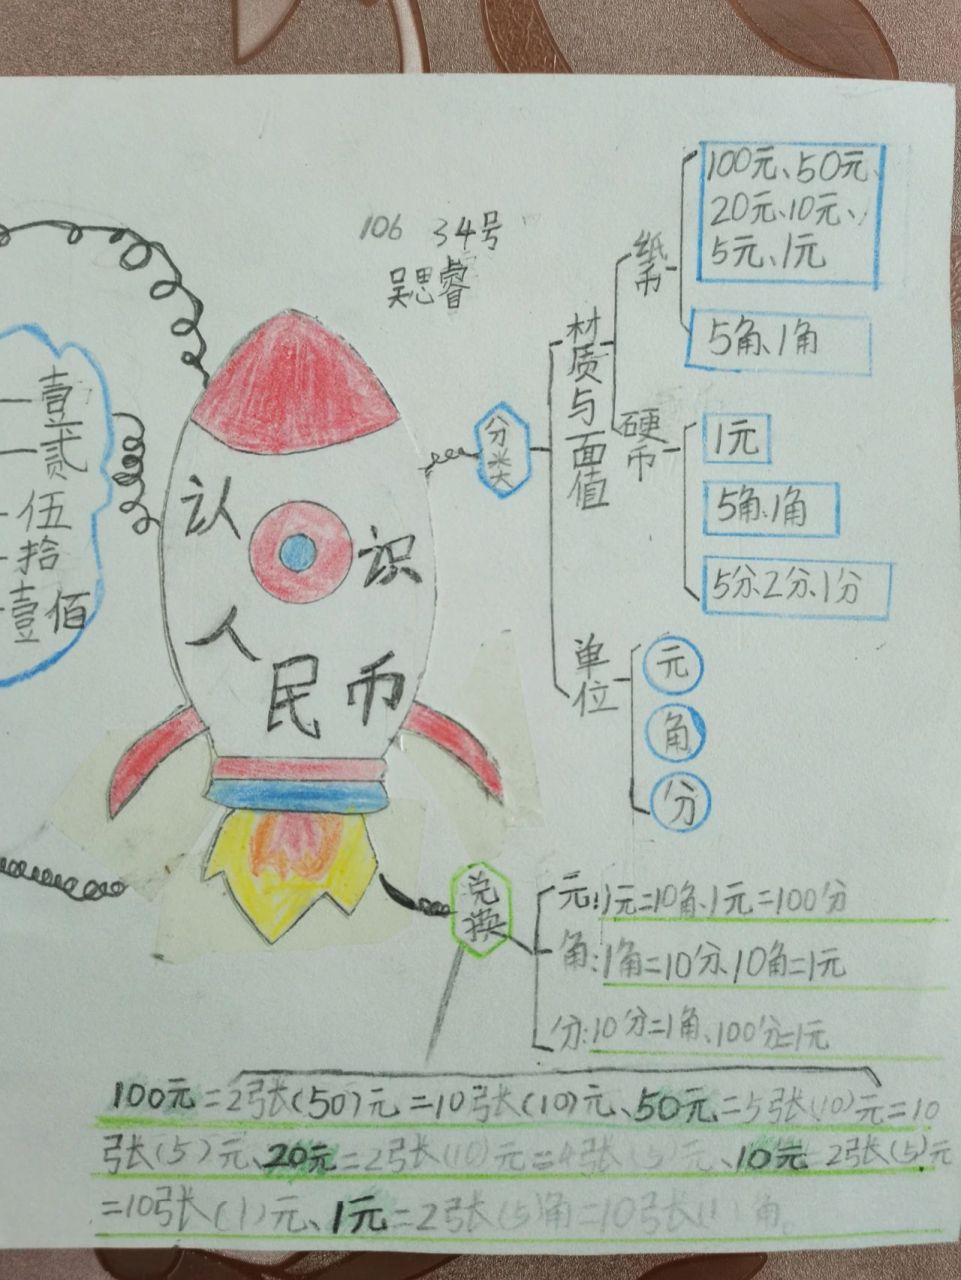 106 34号
吴思睿
一壹
一贰
伍
拾
壹佰
认识
人民币
分类
材质与面值
纸币
100元、50元、
20元、10元、
5元、1元
5角、1角
硬币
1元
5角、1角
5分、2分、1分
单位
元
角
分
兑换
元:1元=10角、1元=100分
角:1角=10分、10角=1元
分:10分=1角、100分=1元
100元=2张(50)元=10张(10)元、50元=5张(10)元=10
张(5)元、20元=2张(10)元=4张(5)元、10元=2张(5)元
=10张(1)元、1元=2张(5)角=10张(1)角。